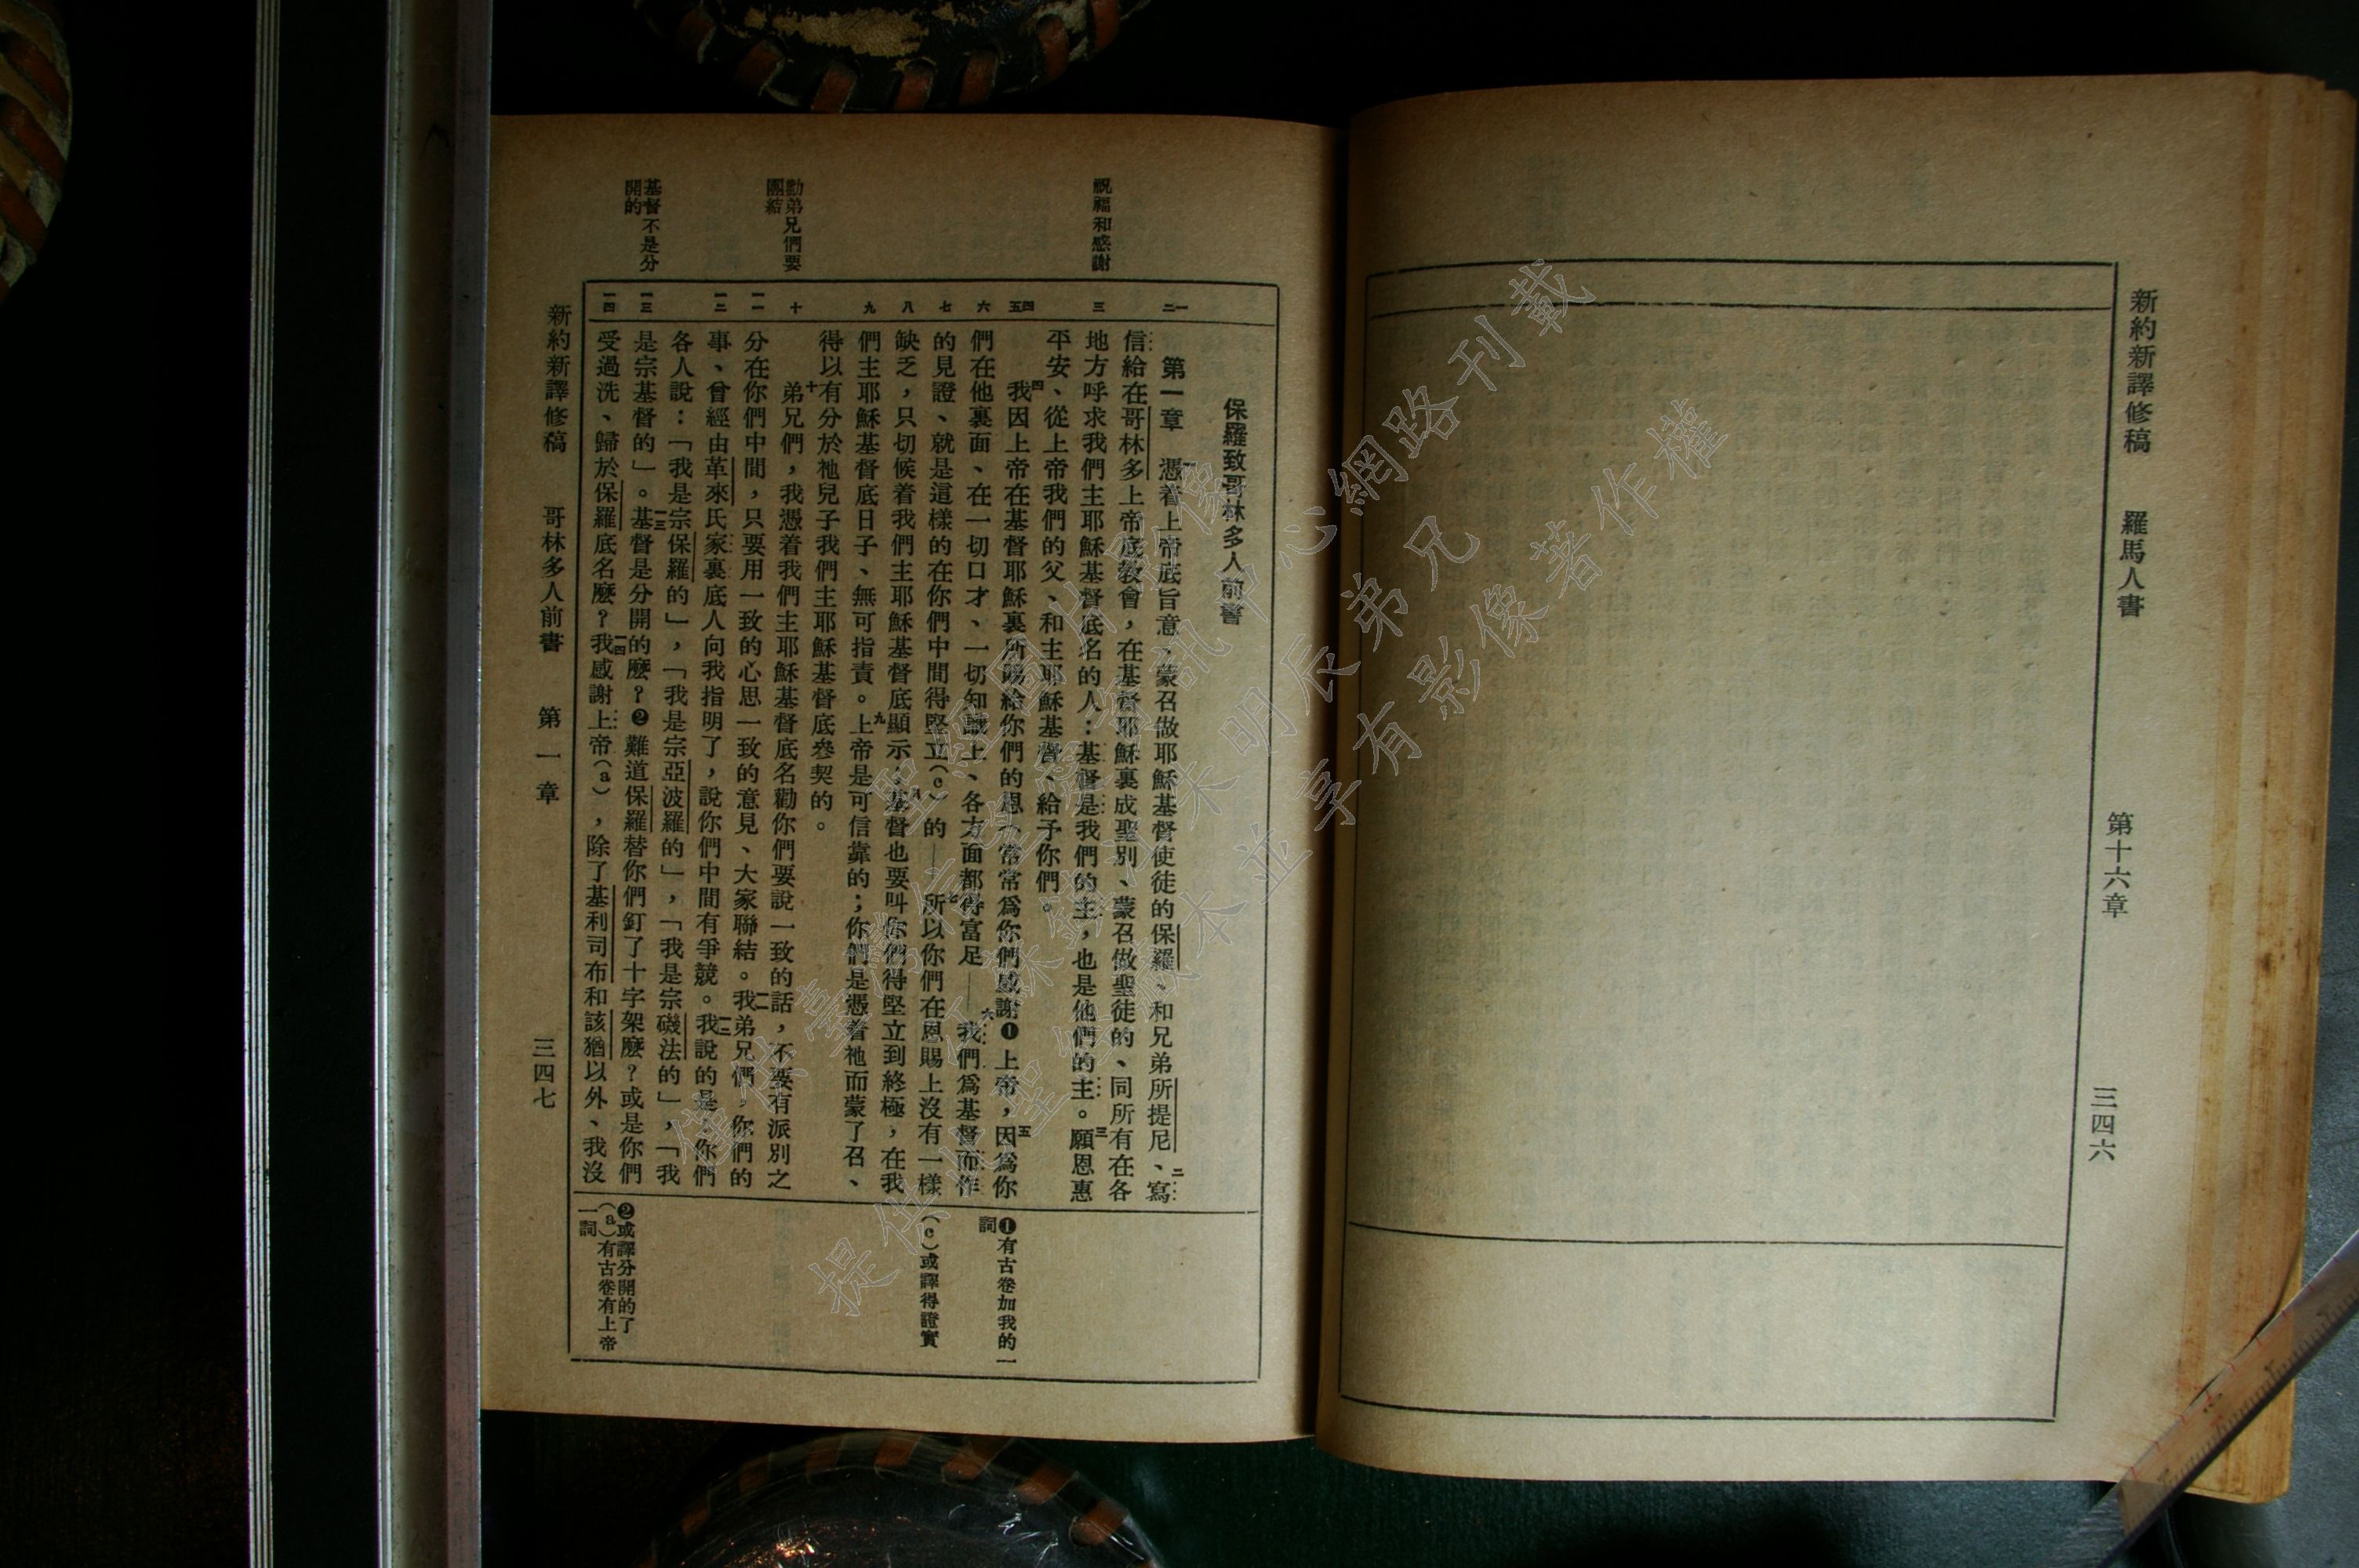 新約新譯修稿　羅馬人書　第十六章　三四六
保羅致哥林多人前書
祝福和感謝
勸弟兄們要
團結
基督不是分
開的
一二
三
四五
六
七
八
九
十
一一
一二
一三
一四
第一章　一憑着上帝底旨意、蒙召做耶穌基督使徒的保羅、和兄弟所提尼、二寫
信給在哥林多上帝底教會，在基督耶穌裏成聖別、蒙召做聖徒的、同所有在各
地方呼求我們主耶穌基督底名的人：基督是我們的主，也是他們的主。三願恩惠
平安、從上帝我們的父、和主耶穌基督、給予你們。
四我因上帝在基督耶穌裏所賜給你們的恩、常常爲你們感謝❶上帝，五因爲你
們在他裏面、在一切口才、一切知識上、各方面都得富足——六我們爲基督而作
的見證、就是這樣的在你們中間得堅立(c)的——七所以你們在恩賜上沒有一樣
缺乏，只切候着我們主耶穌基督底顯示；八基督也要叫你們得堅立到終極，在我
們主耶穌基督底日子、無可指責。九上帝是可信靠的；你們是憑着祂而蒙了召、
得以有分於祂兒子我們主耶穌基督底叁契的。
十弟兄們，我憑着我們主耶穌基督底名勸你們要說一致的話，不要有派別之
分在你們中間，只要用一致的心思一致的意見、大家聯結。一一我弟兄們，你們的
事、曾經由革來氏家裏底人向我指明了，說你們中間有爭競。一二我說的是：你們
各人說：「我是宗保羅的」，「我是宗亞波羅的」，「我是宗磯法的」，「我
是宗基督的」。一三基督是分開的麼？❷難道保羅替你們釘了十字架麼？或是你們
受過洗、歸於保羅底名麼？一四我感謝上帝(a)，除了基利司布和該猶以外、我沒
❶有古卷加我的一
詞
(c)或譯得證實
❷或譯分開的了
(a)有古卷有上帝
一詞
新約新譯修稿　哥林多人前書　第一章　三四七